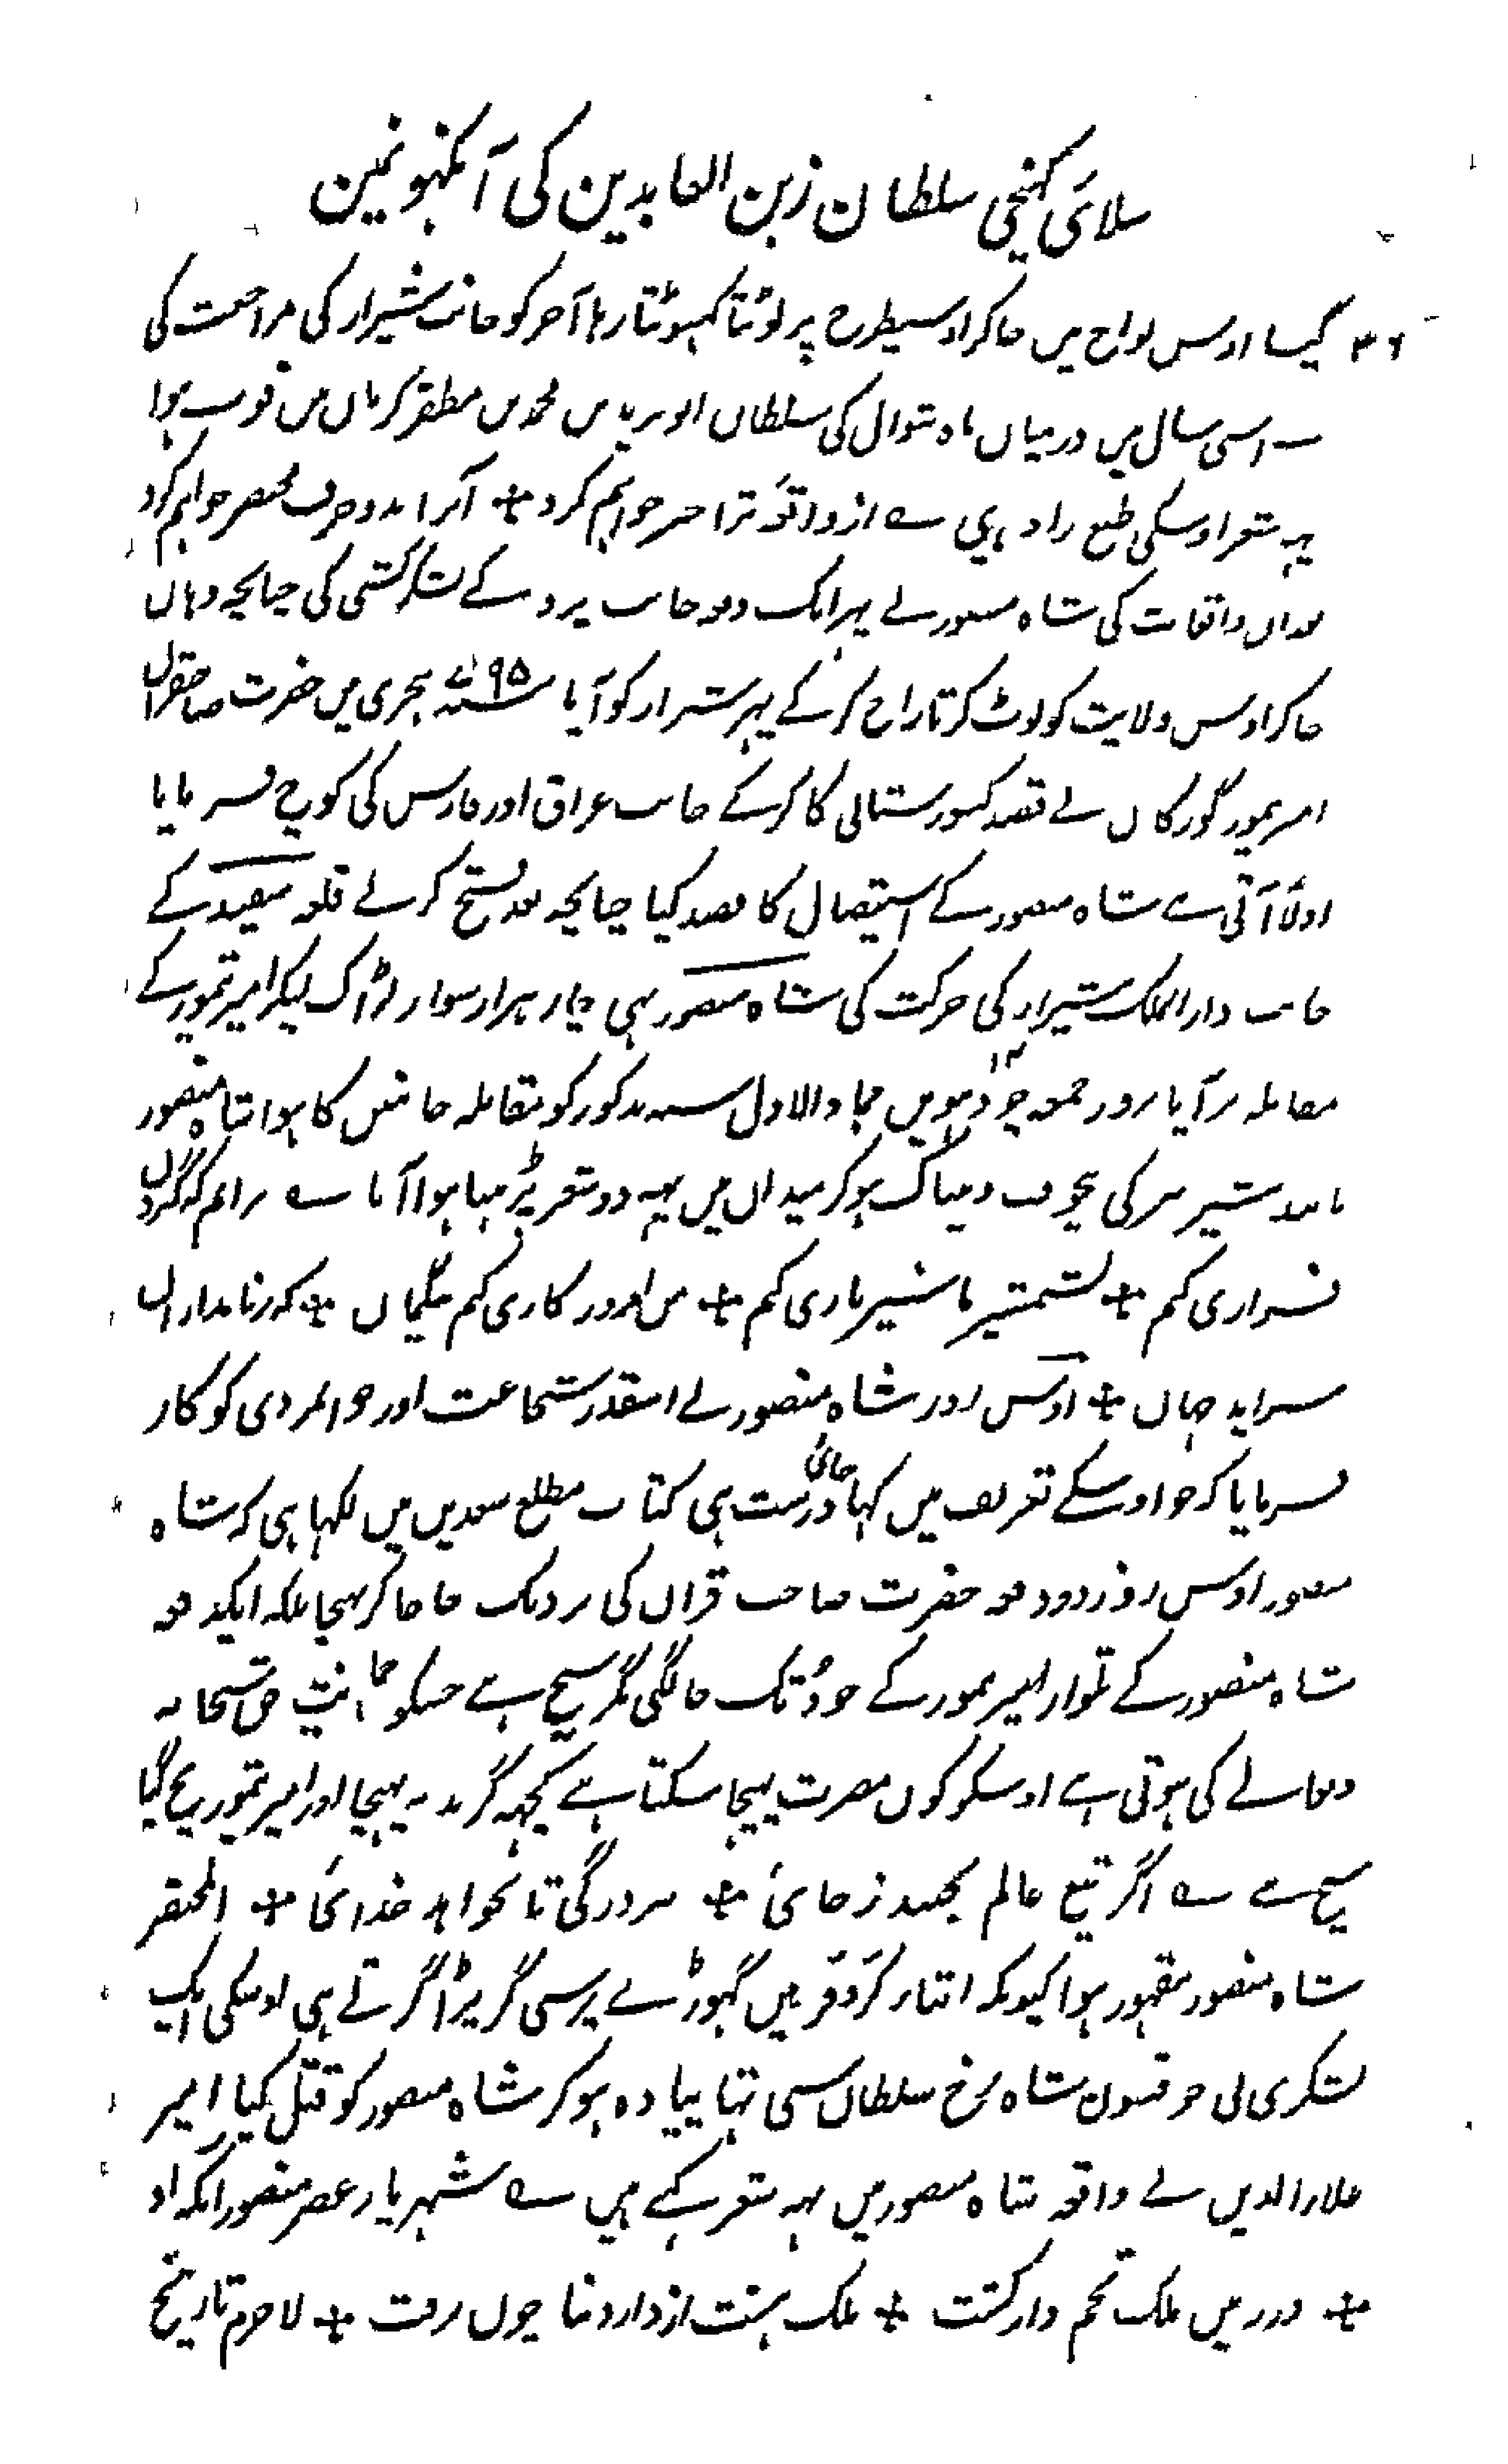 سلائی کھنچی سلطان زین العابدین کی آنکہونمین
۳۶ گیا اوس نواح میں جاکر اوسیطرح پر لوٹتا کہسوٹتا رہا آخر کو جانب شیراز کی مراجعت کی
اسی سال میں درمیان ماہ شوال کی سلطان ابو یزید بن محمد بن مظفر کرمان میں فوت ہوا
یہہ شعر اوسکی طبع زاد ہی ؎ از واقعۂ ترا خبر خواہم کرد ÷ آنرا بدو حرف مختصر خواہم کرد
بعد ان واقعات کی شاہ منصور نے پہر ایک دفعہ جانب یزد کے لشکر کشی کی چنانچہ وہاں
جاکر اوس ولایت کو لوٹ کر تاراج کر کے پہر شیراز کو آیا ۷۹۵سنہ ہجری میں حضرت صاحبقران
امیر تیمور گورکان نے قصد کشورستانی کا کرکے جانب عراق اور فارس کی کوچ فرمایا
اولاً آتی ہے شاہ منصور کے استیصال کا قصد کیا چنانچہ بعد فتح کرنے قلعہ سفید کے
جانب دار الملک شیراز کی حرکت کی شاہ منصور بہی چار ہزار سوار لڑاک لیکر امیر تیمور کے
مقابلہ پر آیا روز جمعہ چودہویں ۱۴ جماد الاول سنہ مذکور کو مقابلہ جانبین کا ہوا شاہ منصور
مانند شیر ببر کی بیخوف و بیباک ہوکر میدان میں یہہ دو شعر پڑہتا ہوا آیا ؎
فسواری کنم ÷ بشمشیر با شیر بازی کنم ÷ من امروز کاری کنم بیگمان ÷ کہ بر نامداران
سراید جہان ÷ اوس روز شاہ منصور نے اسقدر شجاعت اور جوانمردی کو کار
فرمایا کہ جو اوسکے تعریف میں کہا جائی درست ہی کتاب مطلع سعدین میں لکہا ہی کہ شاہ
منصور اوس روز دو دفعہ حضرت صاحب قران کی نزدیک جا جا کر پہنچا بلکہ ایکدفعہ
شاہ منصور کے تلوار امیر تیمور کے خود تک جا لگی مگر سچ ہے جسکو حمایت حق سبحانہ
وتعالے کی ہوتی ہے اوسکو کون مضرت پہنچا سکتا ہے کچہہ گزند نہ پہنچا اور امیر تیمور بچ گیا
سچ ہے ؎ اگر تیغ عالم بجنبد ز جائی ÷ نبرد رگی تا نخواہد خدائی ÷ المختصر
شاہ منصور مقہور ہوا کیونکہ اثناء کر و فر میں گہوڑے پر سی گر پڑا گرتے ہی اوسکی ایک
لشکری نی جو قشون شاہ رخ سلطان سی تہا پیادہ ہوکر شاہ منصور کو قتل کیا امیر
علاء الدین نے واقعہ شاہ منصور میں یہہ شعر کہے ہیں ؎ شہریار عصر منصور انکہ او
÷ در زمین ملک تخم داد کشت ÷ ملک ہشت از دار دنیا چون برفت ÷ لاجرم تاریخ